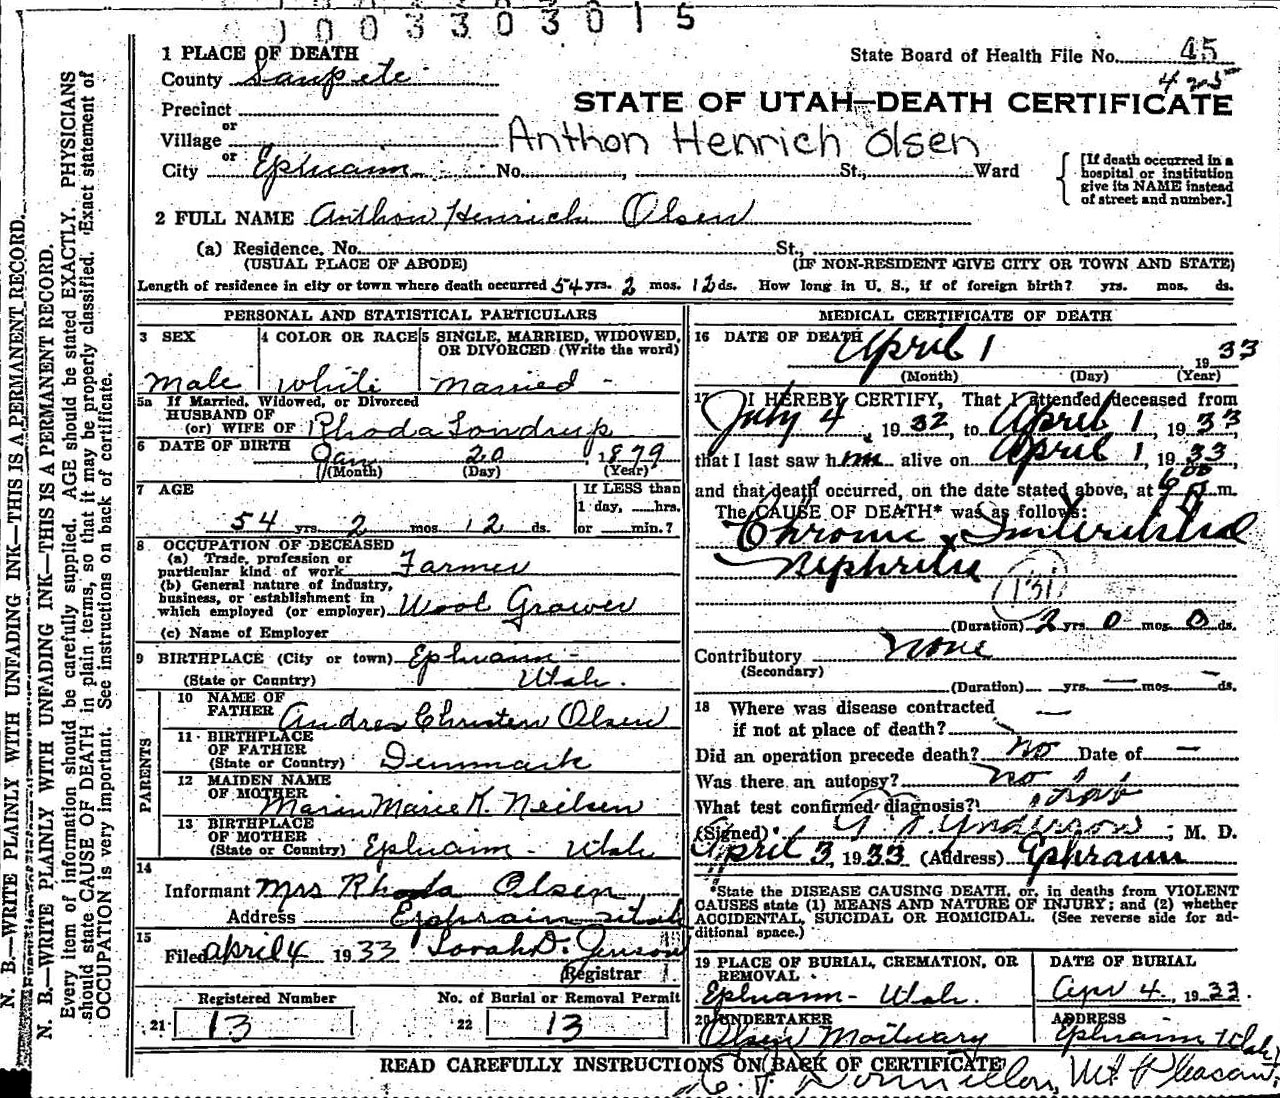 1003303015
1 PLACE OF DEATH
State Board of Health File No. 45
County Sanpete
425
STATE OF UTAH—DEATH CERTIFICATE
Precinct
or
Village
Anthon Henrich Olsen
or
City Ephraim No. , St., Ward
[If death occurred in a hospital or institution give its NAME instead of street and number.]
2 FULL NAME Anthon Henrich Olsen
(a) Residence. No. St.,
(USUAL PLACE OF ABODE) (IF NON-RESIDENT GIVE CITY OR TOWN AND STATE)
Length of residence in city or town where death occurred 54 yrs. 2 mos. 12 ds. How long in U. S., if of foreign birth? yrs. mos. ds.
PERSONAL AND STATISTICAL PARTICULARS
3 SEX 4 COLOR OR RACE 5 SINGLE, MARRIED, WIDOWED,
OR DIVORCED (Write the word)
Male White Married
5a If Married, Widowed, or Divorced
HUSBAND OF
(or) WIFE OF Rhoda Londrup
6 DATE OF BIRTH
Jan 20, 1879
(Month) (Day) (Year)
7 AGE If LESS than
1 day, hrs.
54 yrs. 2 mos. 12 ds. or min.?
8 OCCUPATION OF DECEASED
(a) Trade, profession or
particular kind of work Farmer
(b) General nature of industry,
business, or establishment in
which employed (or employer) Wool Grower
(c) Name of Employer
9 BIRTHPLACE (City or town) Ephraim-
(State or Country) Utah.
PARENTS
10 NAME OF
FATHER Andres Christen Olsen
11 BIRTHPLACE
OF FATHER
(State or Country) Denmark
12 MAIDEN NAME
OF MOTHER Maria Marie K. Neilsen
13 BIRTHPLACE
OF MOTHER
(State or Country) Ephraim - Utah
14
Informant Mrs Rhoda Olsen
Address Ephraim Utah
15
Filed April 4 1933 Sarah D. Jenson
Registrar
Registered Number No. of Burial or Removal Permit
21 13 22 13
MEDICAL CERTIFICATE OF DEATH
16 DATE OF DEATH April 1 1933
(Month) (Day) (Year)
17 I HEREBY CERTIFY, That I attended deceased from
July 4, 1932, to April 1, 1933,
that I last saw him alive on April 1, 1933,
and that death occurred, on the date stated above, at 6 00 m.
The CAUSE OF DEATH* was as follows:
Chronic Interstitial
Nephritis
131
(Duration) 2 yrs. 0 mos. 0 ds.
Contributory None
(Secondary)
(Duration) — yrs. — mos. — ds.
18 Where was disease contracted
if not at place of death? —
Did an operation precede death? no Date of —
Was there an autopsy? no
What test confirmed diagnosis?
(Signed) Anderson, M. D.
April 3, 1933 (Address) Ephraim
*State the DISEASE CAUSING DEATH, or, in deaths from VIOLENT
CAUSES state (1) MEANS AND NATURE OF INJURY; and (2) whether
ACCIDENTAL, SUICIDAL OR HOMICIDAL. (See reverse side for ad-
ditional space.)
19 PLACE OF BURIAL, CREMATION, OR
REMOVAL
Ephraim- Utah.
DATE OF BURIAL
Apr 4, 1933.
20 UNDERTAKER
Olsen Mortuary
ADDRESS
Ephraim Utah
READ CAREFULLY INSTRUCTIONS ON BACK OF CERTIFICATE
Mt. Pleasant
N. B.—WRITE PLAINLY WITH UNFADING INK—THIS IS A PERMANENT RECORD.
N. B.—WRITE PLAINLY WITH UNFADING INK—THIS IS A PERMANENT RECORD.
Every item of information should be carefully supplied. AGE should be stated EXACTLY. PHYSICIANS
should state CAUSE OF DEATH in plain terms, so that it may be properly classified. Exact statement of
OCCUPATION is very important. See instructions on back of certificate.